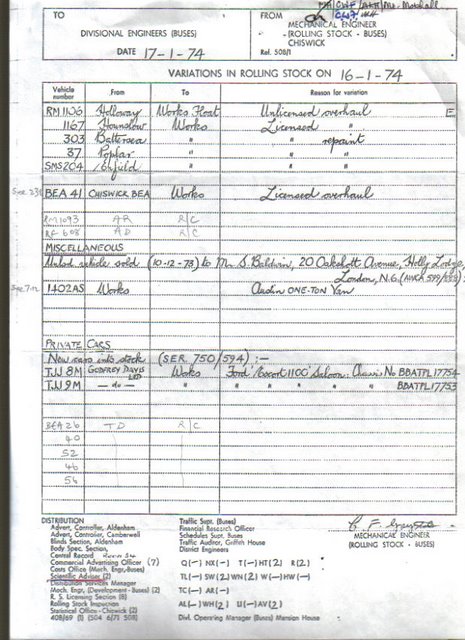 TO
DIVISIONAL ENGINEERS (BUSES)
DATE 17-1-74
FROM
MECHANICAL ENGINEER
(ROLLING STOCK - BUSES)
CHISWICK
Ref. 508/1
VARIATIONS IN ROLLING STOCK ON 16-1-74
Vehicle number From To Reason for variation
RM1106 Holloway Works Float Unlicensed overhaul E
1167 Hounslow Works Licensed "
303 Battersea " " repaint
37 Poplar " " "
SMS204 Enfield " " "
BEA 41 CHISWICK BEA Works Licensed overhaul
RM1093 AR R/C
RF 608 AD R/C
MISCELLANEOUS
vehicle sold (10-12-73) to Mr. S. Baldwin, 20 Oakshott Avenue, Holly Lodge,
London, N.6
1402AS Works Austin ONE-TON Van
PRIVATE CARS
New cars into stock (SER. 750/594) :-
TJJ 8M GODFREY DAVIS LTD Works Ford 'Escort 1100' Saloon: Chassis No BBATPL17754
TJJ 9M — do — " " " " " " BBATPL17753
BEA 26 TD R/C
40
52
46
56
DISTRIBUTION
Advert. Controller, Aldenham
Advert. Controller, Camberwell
Blinds Section, Aldenham
Body Spec. Section,
Central Record
Commercial Advertising Officer (7)
Costs Office (Mech. Engr.-Buses)
Scientific Adviser (2)
Distribution Services Manager
Mech. Engr. (Development - Buses) (2)
R. S. Licensing Section (8)
Rolling Stock Inspection
Statistical Office - Chiswick (2)
408/69 (1) (504 6/71 508)
Traffic Supt. (Buses)
Financial Research Officer
Schedules Supt. Buses
Traffic Auditor, Griffith House
District Engineers
Q(—) NX(—) T(—) HT(2) R(2)
TL(—) SW(2) WN(2) W(—) HW(—)
TC(—) AR(—)
AL(—) WH(2) U(—) AV(2)
Divl. Operating Manager (Buses) Mansion House
MECHANICAL ENGINEER
(ROLLING STOCK - BUSES)